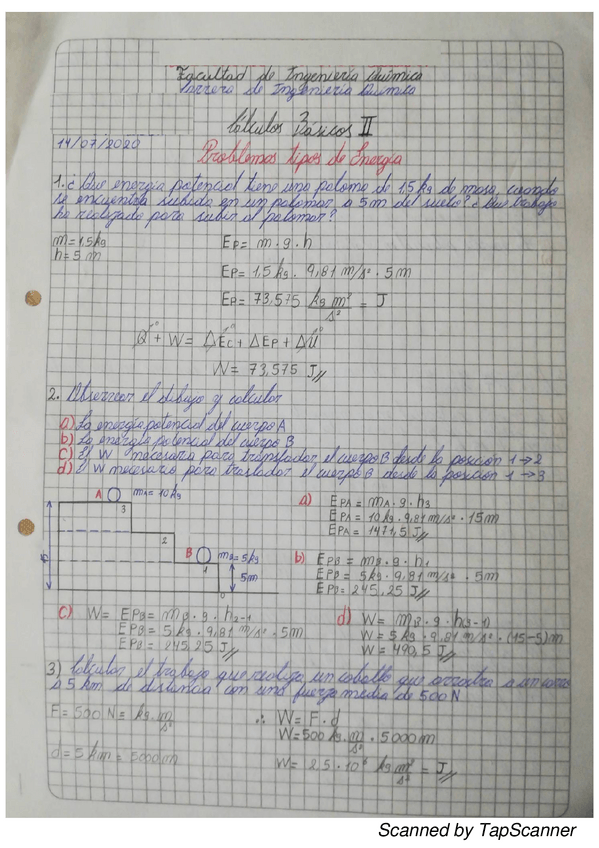 Facultad de Ingeniería Química
Carrera de Ingeniería Química
Cálculos Básicos II
14/07/2020
Problemas tipos de Energía
1. ¿Que energía potencial tiene una paloma de 1,5 kg de masa, cuando
se encuentra subida en un palomar a 5m del suelo? ¿Que trabajo
ha realizado para subir al palomar?
m = 1,5kg
h = 5 m
Ep = m · g · h
Ep = 1,5 kg · 9,81 m/s² · 5m
Ep = 73,575 kg m²/s² = J
Q + W = ΔEc + ΔEp + ΔU
W = 73,575 J//
2. Observar el dibujo y calcular
a) La energía potencial del cuerpo A
b) La energía potencial del cuerpo B
c) El W necesario para transladar el cuerpo B desde la posición 1→2
d) El W necesario para trasladar el cuerpo B desde la posición 1→3
A mA = 10 kg
3
2
B mB = 5kg
1
5m
15
0
a) EPA = mA · g · h3
EPA = 10 kg · 9,81 m/s² · 15m
EPA = 1471,5 J//
b) EPB = mB · g · h1
EPB = 5kg · 9,81 m/s² · 5m
EPB = 245,25 J//
c) W = EPB = mB · g · h2-1
EPB = 5 kg · 9,81 m/s² · 5m
EPB = 245,25 J//
d) W = mB · g · h(3-1)
W = 5 kg · 9,81 m/s² · (15-5)m
W = 490,5 J//
3) Calcular el trabajo que realiza un caballo que arrastra a un carro
a 5 km de distancia con una fuerza media de 500 N
F = 500 N = kg · m/s²
d = 5 km = 5000m
∴ W = F · d
W = 500 kg · m/s² · 5000m
W = 2,5 · 10⁶ kg m²/s² = J//
Scanned by TapScanner